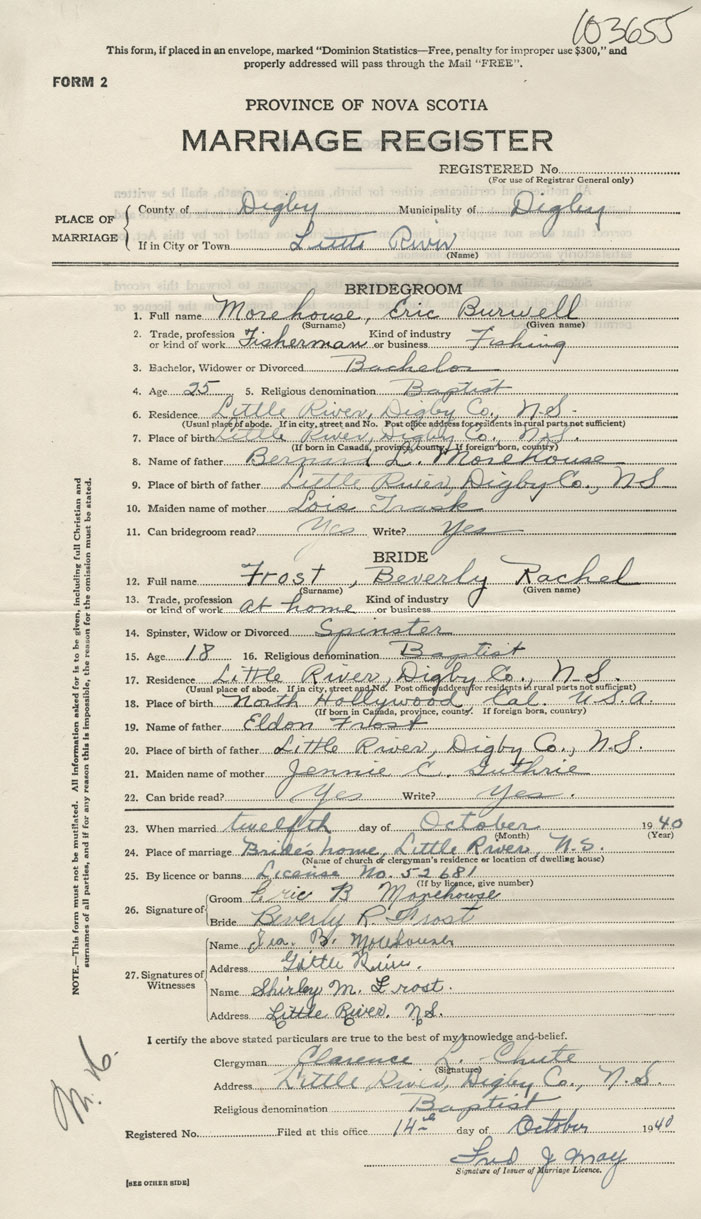 103655
This form, if placed in an envelope, marked "Dominion Statistics—Free, penalty for improper use $300," and
properly addressed will pass through the Mail "FREE".
FORM 2
PROVINCE OF NOVA SCOTIA
MARRIAGE REGISTER
REGISTERED No.
(For use of Registrar General only)
PLACE OF MARRIAGE
County of Digby Municipality of Digby
If in City or Town Little River
(Name)
BRIDEGROOM
1. Full name Morehouse, Eric Burwell
(Surname) (Given name)
2. Trade, profession or kind of work Fisherman Kind of industry or business Fishing
3. Bachelor, Widower or Divorced Bachelor
4. Age 25 5. Religious denomination Baptist
6. Residence Little River, Digby Co., N.S.
(Usual place of abode. If in city, street and No. Post office address for residents in rural parts not sufficient)
7. Place of birth Little River, Digby Co., N.S.
(If born in Canada, province, county. If foreign born, country)
8. Name of father Bernard L. Morehouse
9. Place of birth of father Little River, Digby Co., N S
10. Maiden name of mother Lois Trask
11. Can bridegroom read? Yes Write? Yes
BRIDE
12. Full name Frost, Beverly Rachel
(Surname) (Given name)
13. Trade, profession or kind of work at home Kind of industry or business
14. Spinster, Widow or Divorced Spinster
15. Age 18 16. Religious denomination Baptist
17. Residence Little River, Digby Co., N.S.
(Usual place of abode. If in city, street and No. Post office address for residents in rural parts not sufficient)
18. Place of birth North Hollywood, Cal. U.S.A.
(If born in Canada, province, county. If foreign born, country)
19. Name of father Eldon Frost
20. Place of birth of father Little River, Digby Co., N.S.
21. Maiden name of mother Jennie C. Guthrie
22. Can bride read? Yes Write? Yes.
23. When married twelfth day of October 1940
(Month) (Year)
24. Place of marriage Bride's home, Little River, N.S.
(Name of church or clergyman's residence or location of dwelling house)
25. By licence or banns License No. 52681
(If by licence, give number)
26. Signature of
Groom Eric B Morehouse
Bride Beverly R. Frost
27. Signatures of Witnesses
Name B. Morehouse
Address Little River.
Name Shirley M. Frost.
Address Little River. N.S.
I certify the above stated particulars are true to the best of my knowledge and belief.
Clergyman Clarence L. Chute
(Signature)
Address Little River, Digby Co., N.S.
Religious denomination Baptist
Registered No. Filed at this office 14th day of October 1940
Fred J May
Signature of Issuer of Marriage Licence.
[SEE OTHER SIDE]
NOTE.—This form must not be mutilated. All information asked for is to be given, including full Christian and
surnames of all parties, and if for any reason this is impossible, the reason for the omission must be stated.